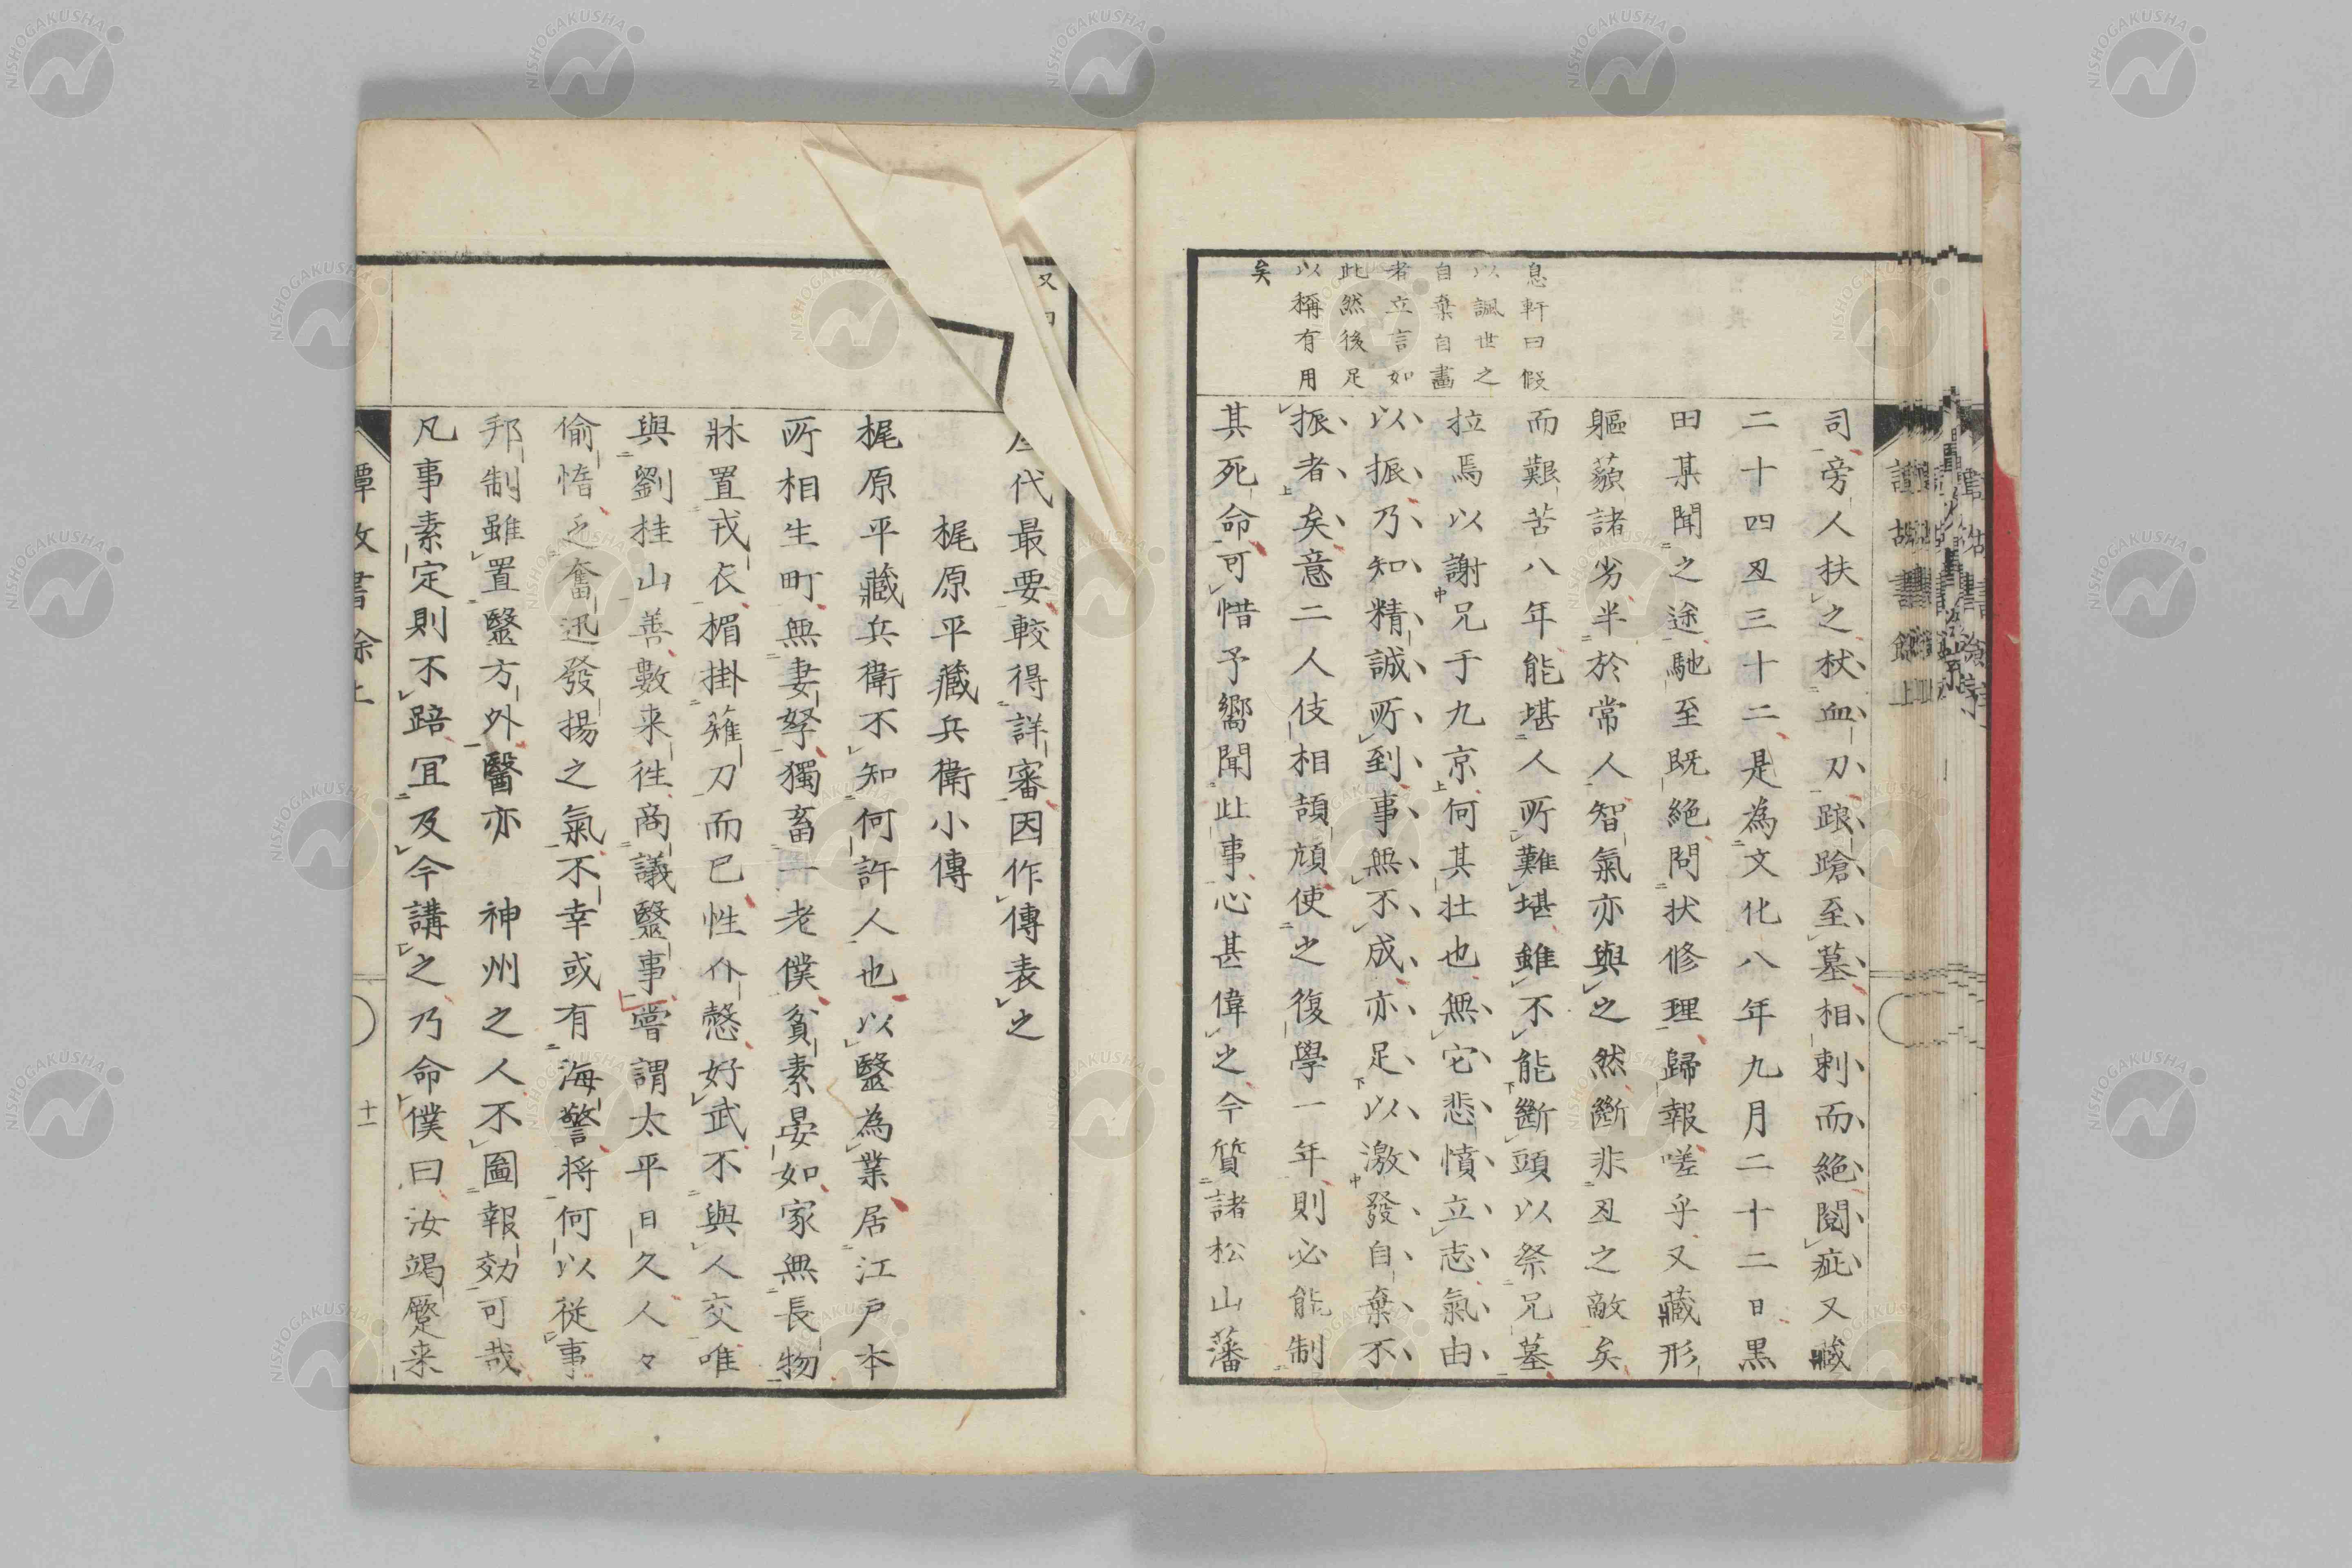 司旁人扶之杖血刀踉蹌至墓相剌而絶閲疵又藏
二十四丑三十二是為文化八年九月二十二日黒
田某聞之途馳至既絶問状修理歸報嗟乎又藏形
軀藐諸劣半於常人智氣亦與之然斷非丑之敵矣
而艱苦八年能堪人所難堪雖不能斷頭以祭兄墓
拉焉以謝兄于九京何其壮也無它悲憤立志氣由
以振乃知精誠所到事無不成亦足以激發自棄不
振者矣意二人伎相頡頏使之復學一年則必能制
其死命可惜予嚮聞此事心甚偉之今質諸松山藩
息軒曰假
以諷世之
自棄自畵
者立言如
此然後足
以稱有用
矣
又曰
代最要較得詳審因作傳表之
梶原平藏兵衛小傳
梶原平藏兵衛不知何許人也以醫為業居江戸本
所相生町無妻孥獨畜一老僕貧素晏如家無長物
牀置戎衣楣掛薙刀而已性介慤好武不與人交唯
與劉桂山善數来徃商議醫事嘗謂太平日久人々
偷惰乏奮迅發揚之氣不幸或有海警将何以従事
邦制雖置醫方外醫亦　神州之人不圖報効可哉
凡事素定則不踣冝及今講之乃命僕曰汝竭蹷来
譚故書餘上
十一
NISHOGAKUSHA